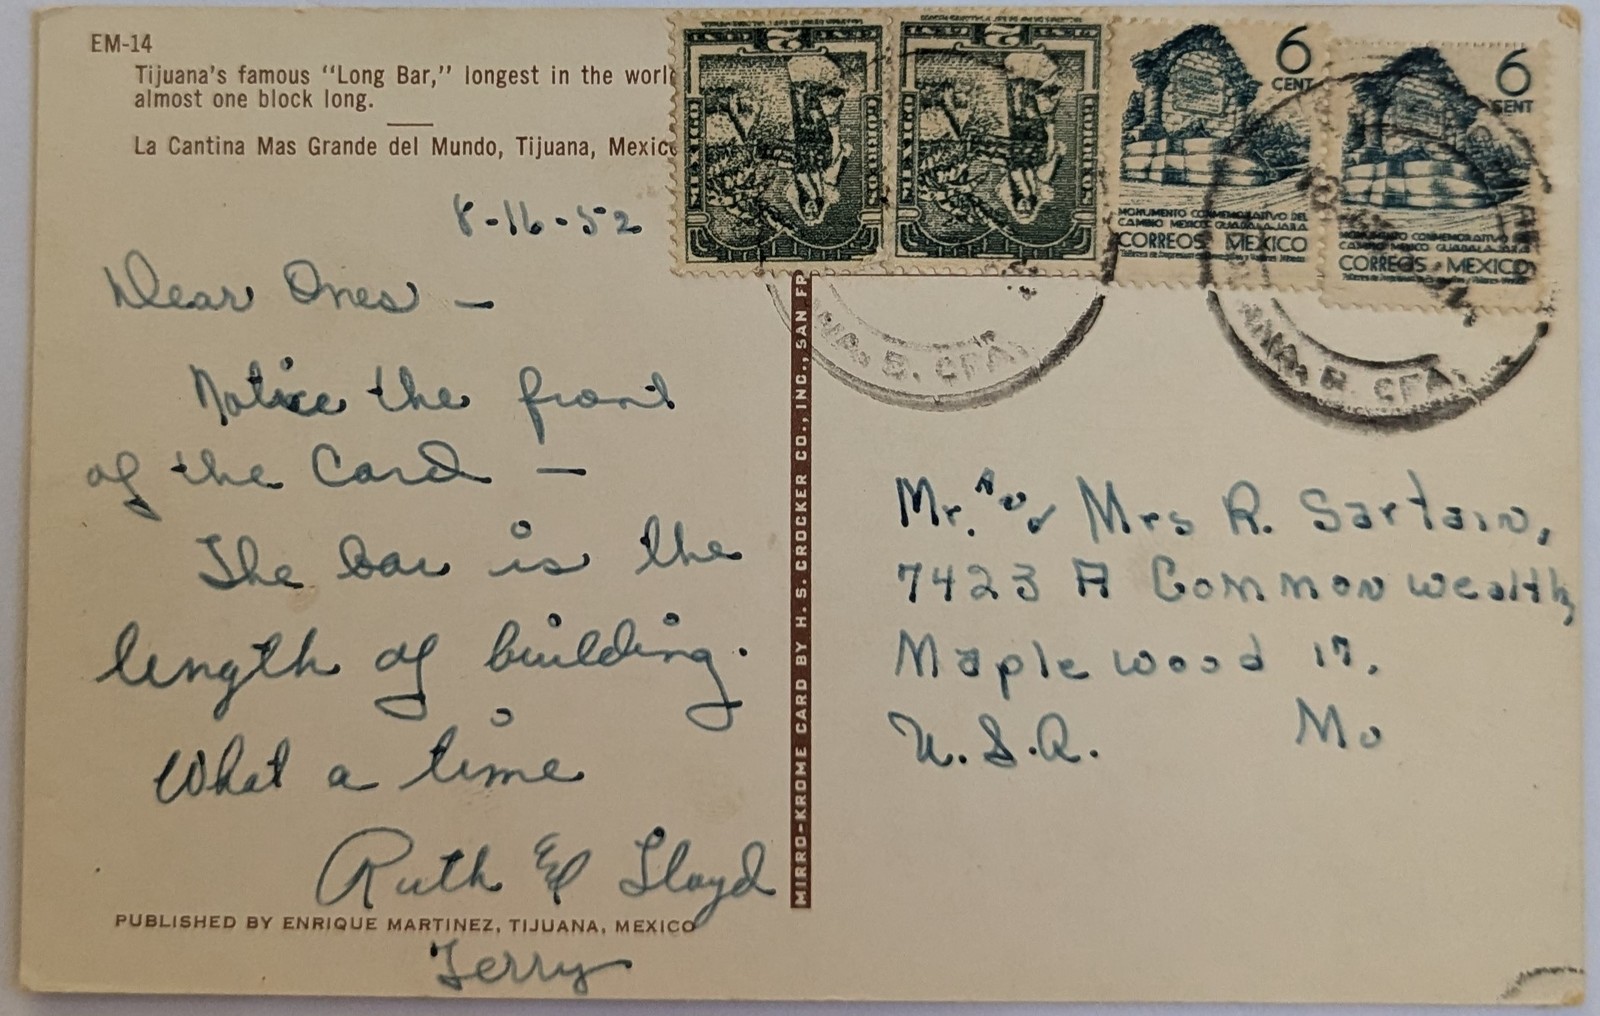 EM-14
Tijuana's famous "Long Bar," longest in the worl
almost one block long.
La Cantina Mas Grande del Mundo, Tijuana, Mexic
8-16-52
Dear Ones —
Notice the front
of the Card —
The bar is the
length of building.
What a time
Ruth & Lloyd
Terry
PUBLISHED BY ENRIQUE MARTINEZ, TIJUANA, MEXICO
MIRRO-KROME CARD BY H. S. CROCKER CO., INC., SAN FR
MEXICO
MEXICO
6
CENT
MONUMENTO CONMEMORATIVO DEL
CAMINO MEXICO GUADALAJARA
CORREOS MEXICO
6
CENT
MONUMENTO CONMEMORATIVO
CAMINO MEXICO GUADALAJARA
CORREOS MEXICO
B. CFA.
B. CFA.
Mr. and Mrs R. Sartain,
7423 A Commonwealth,
Maplewood 17,
U.S.A. Mo